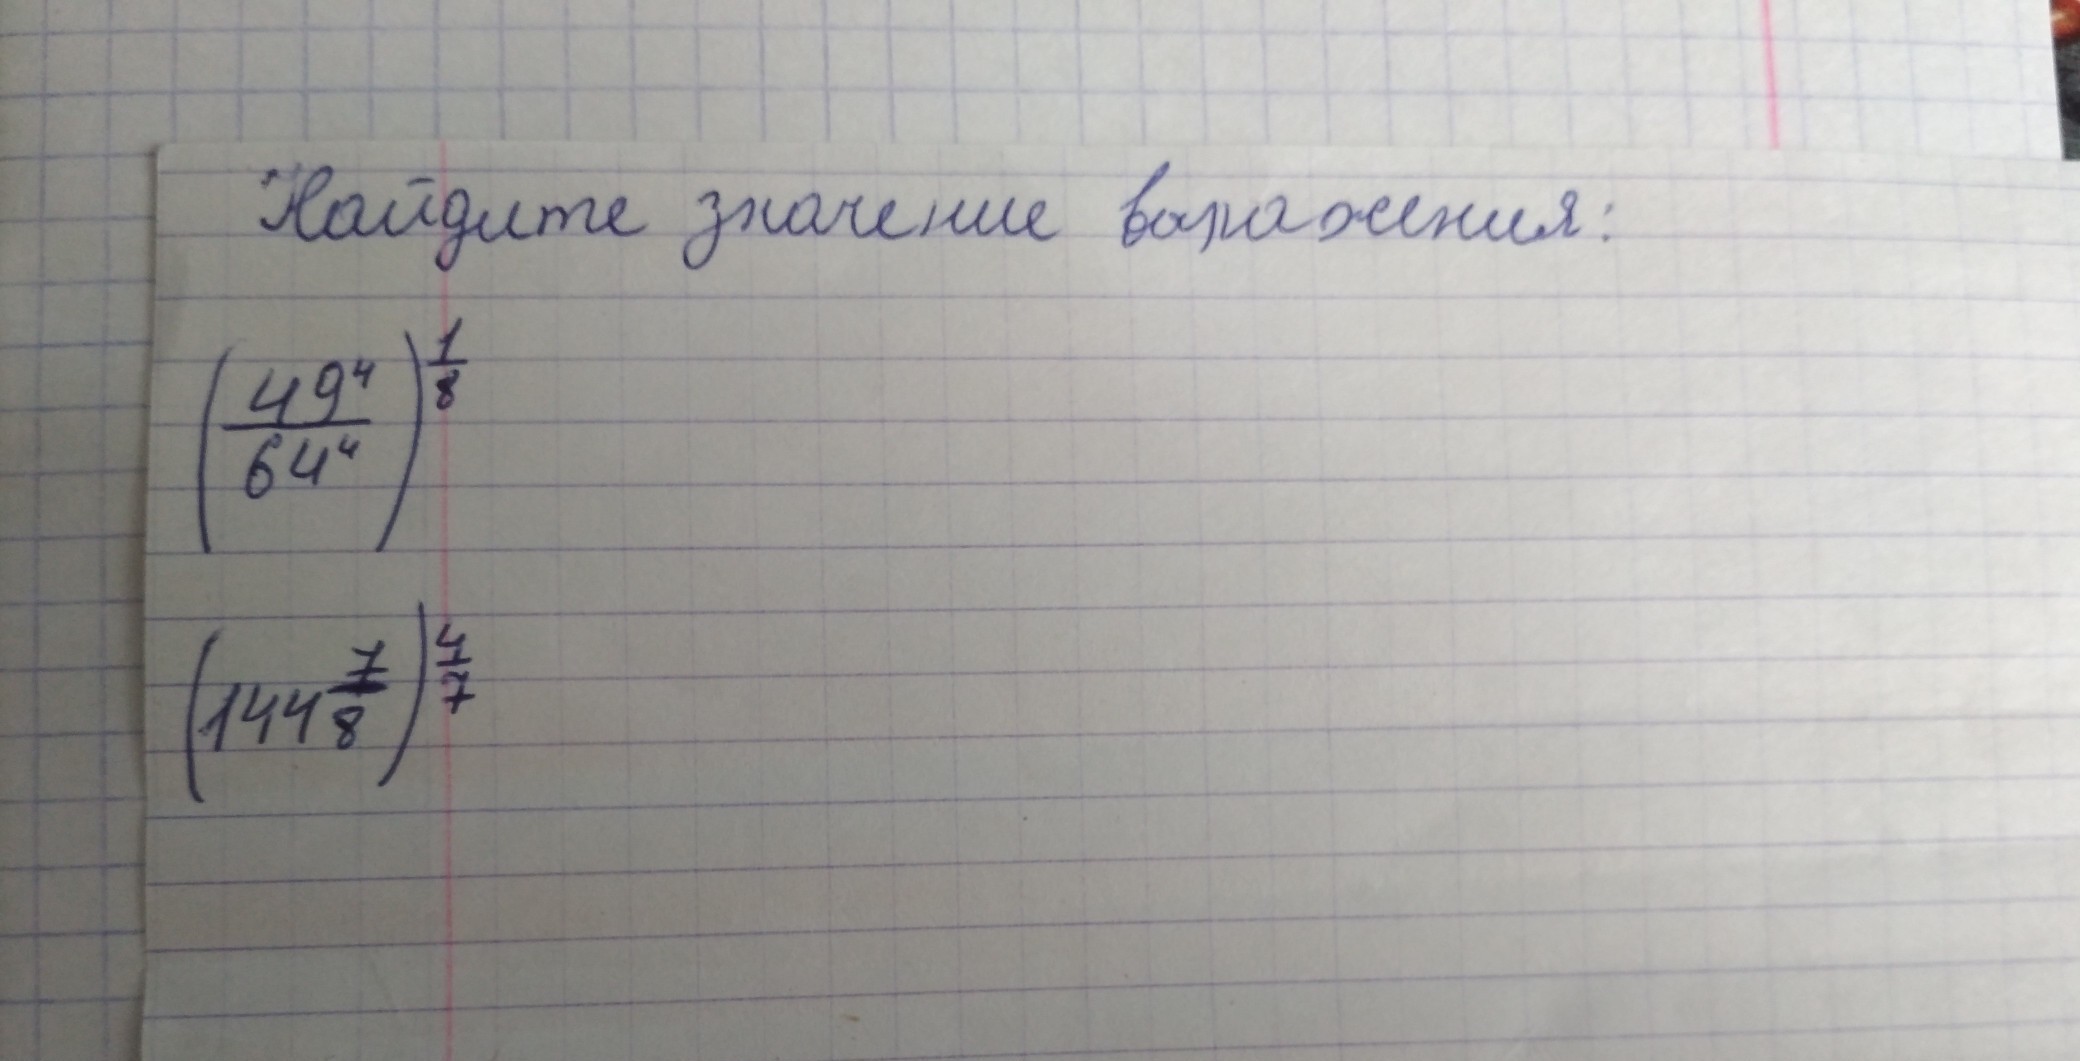 Найдите значение выражения:
(49⁴/64⁴)^(1/8)
(144^(7/8))^(4/7)